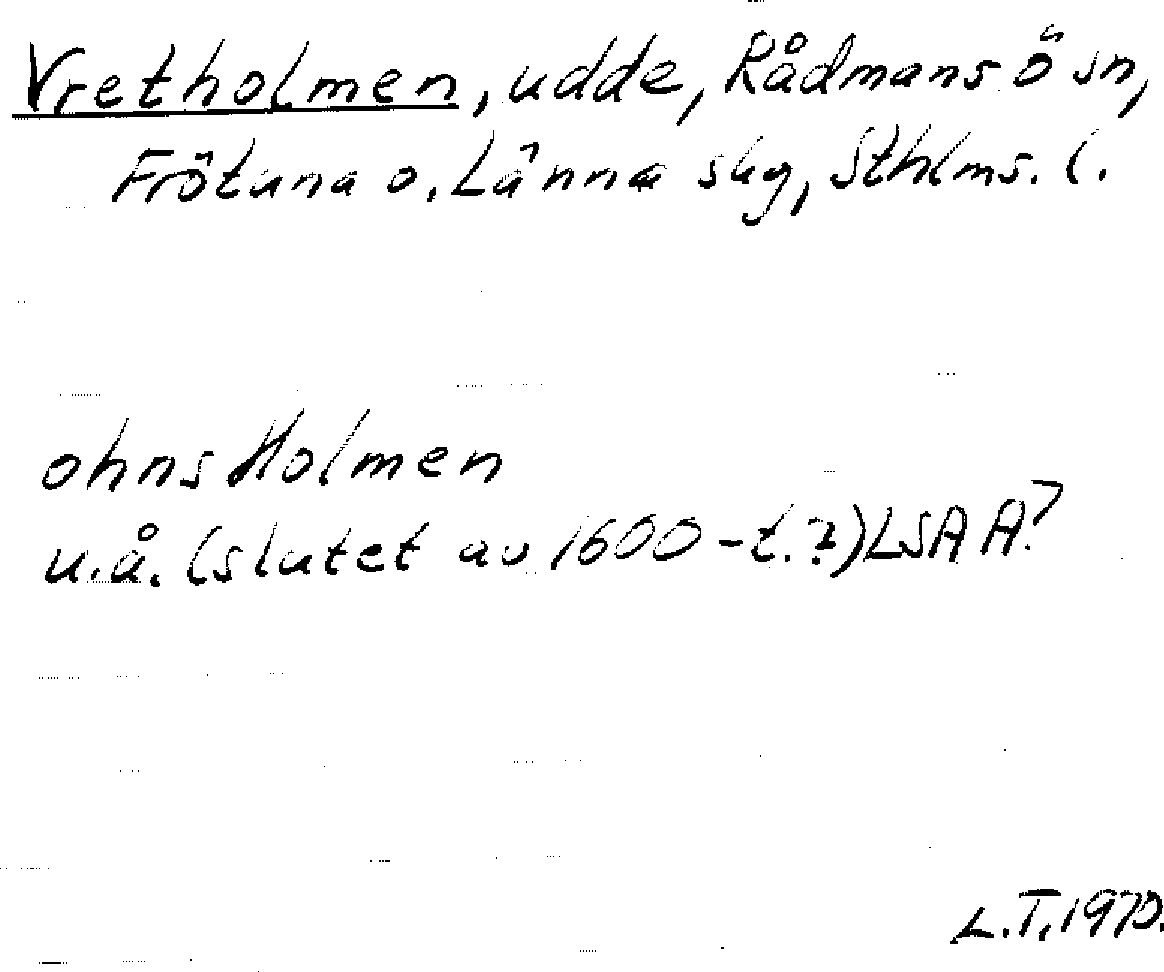 Vretholmen, udde, Rådmansö sn,
Frötuna o. Länna slg, Sthlms. l.
ohns Holmen
u.å. (slutet av 1600-t.?) LSA A?
L.T. 1970.